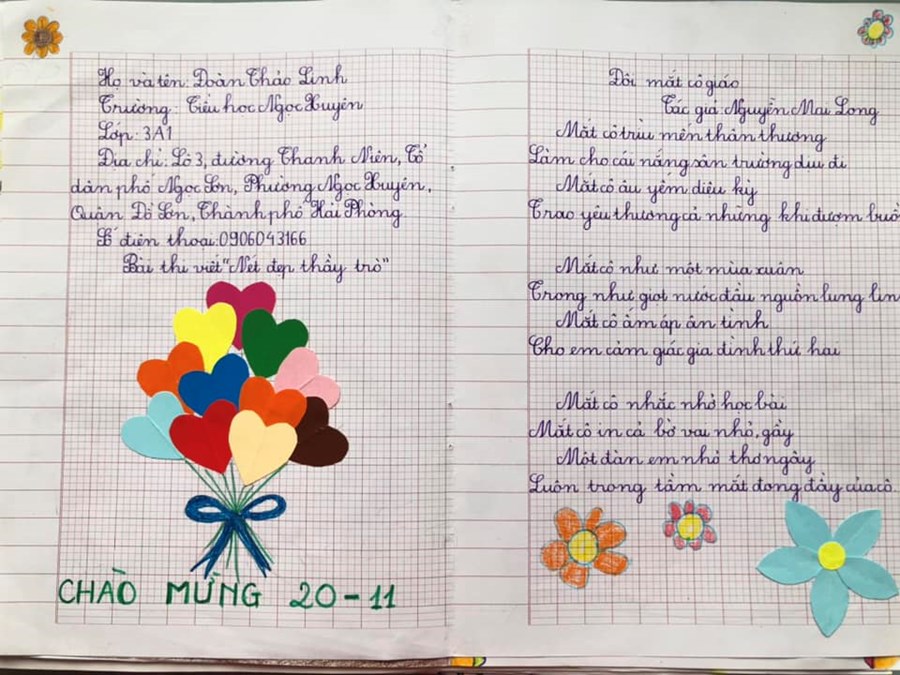 Họ và tên: Đoàn Thảo Linh
Trường: Tiểu học Ngọc Xuyên
Lớp: 3A1
Địa chỉ: Lô 3, đường Thanh Niên, Tổ
dân phố Ngọc Sơn, Phường Ngọc Xuyên,
Quận Đồ Sơn, Thành phố Hải Phòng
Số điện thoại: 0906043166
Bài thi viết "Nét đẹp thầy trò"
CHÀO MỪNG 20-11
Đôi mắt cô giáo
Tác giả Nguyễn Mai Long
Mắt cô trìu mến thân thương
Làm cho cái nắng sân trường dịu đi
Mắt cô âu yếm diệu kỳ
Trao yêu thương cả những khi đượm buồ
Mắt cô như một mùa xuân
Trong như giọt nước đầu nguồn lung lin
Mắt cô ấm áp ân tình
Cho em cảm giác gia đình thứ hai
Mắt cô nhắc nhở học bài
Mắt cô in cả bờ vai nhỏ, gầy
Một đàn em nhỏ thơ ngây
Luôn trong tầm mắt đong đầy của cô.